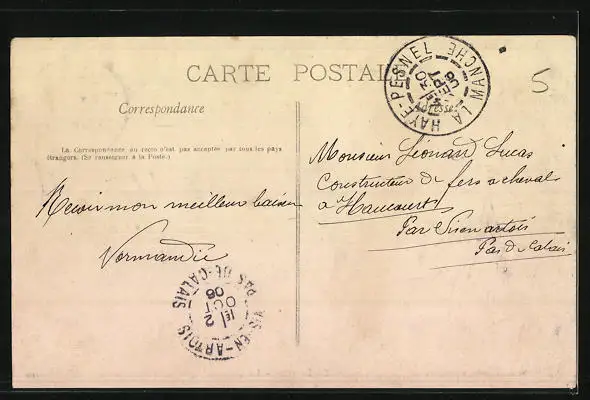 CARTE POSTALE
Correspondance
La Correspondance au recto n'est pas acceptée par tous les pays
étrangers. (Se renseigner à la Poste.)
Adresse
LA HAYE-PESNEL MANCHE
30
SEPT
06
5
Monsieur Léonard Lucas
Constructeur de fers a cheval
a Haucourt
Par Vis en artois
Pas de Calais
Recevoir mon meilleur baiser
Normandie
VIS-EN-ARTOIS PAS-DE-CALAIS
1E
2
OCT
06